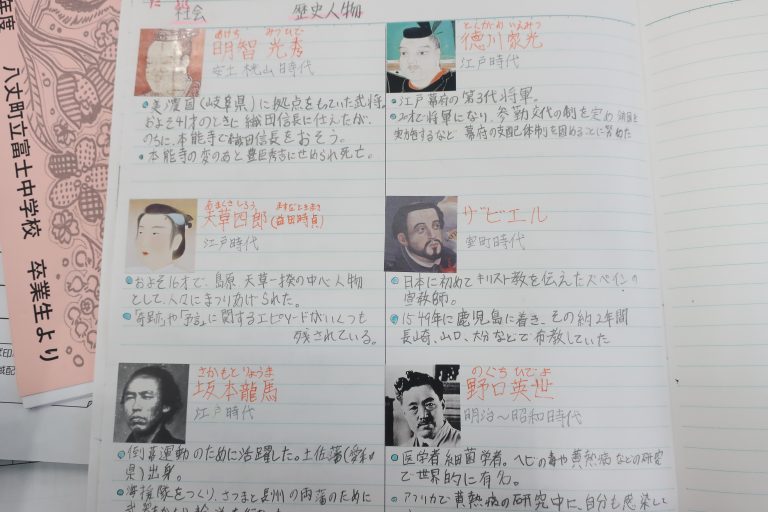 年度
八丈町立富士中学校 卒業生より
社会 歴史人物
あけち みつひで
明智 光秀
安土桃山時代
美濃国(岐阜県)に拠点をもっていた武将。
およそ41才のときに織田信長に仕えたが、
のちに、本能寺で織田信長をおそう。
本能寺の変のあと豊臣秀吉にせめられ死亡。
とくがわ いえみつ
徳川家光
江戸時代
江戸幕府の第3代将軍。
20才で将軍になり、参勤交代の制を定め
実施するなど、幕府の支配体制を固めることに努めた
あまくさしろう
天草四郎(益田時貞)
江戸時代
およそ16才で、島原 天草一揆の中心人物
として、人々にまつりあげられた。
奇跡や「予言」に関するエピソードがいくつも
残されている。
ザビエル
室町時代
日本に初めてキリスト教を伝えたスペインの
宣教師。
1549年に鹿児島に着き、その約2年間
長崎、山口、大分などで布教していた
さかもとりょうま
坂本龍馬
江戸時代
倒幕運動のために活躍した。土佐藩(
県)出身。
海援隊をつくり、さつまと長州の両藩のために
のぐちひでよ
野口英世
明治～昭和時代
医学者 細菌学者。ヘビの毒や黄熱病などの研究
で世界的に有名。
アフリカで黄熱病の研究中に、自分も感染して